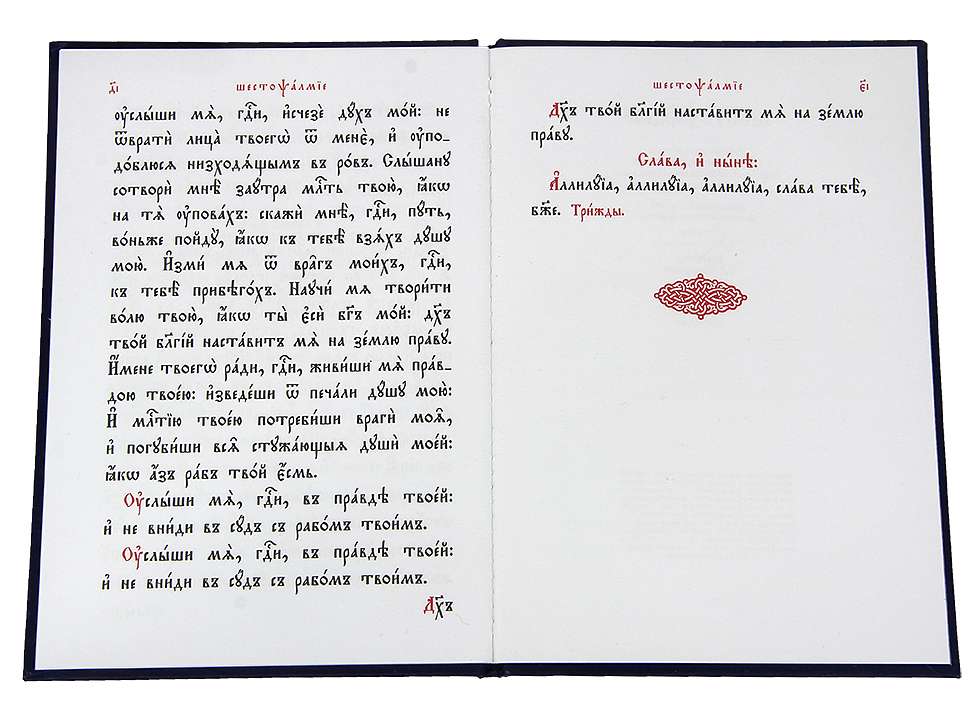 д҃і
шестоѱа́лмїе
оу҆слы́ши мѧ̀, гдⷭ҇и, и҆счезѐ дꙋ́хъ мо́й: не
ѿвратѝ лица̀ твоегѡ̀ ѿ менє̀, и҆ оу҆по-
до́блюсѧ низходѧ́щымъ въ ро́въ. Слы́шанꙋ
сотворѝ мнѣ̀ заꙋ́тра млⷭ҇ть твою̀, ꙗ҆́кѡ
на тѧ̀ оу҆пова́хъ: скажи́ мнѣ̀, гдⷭ҇и, пꙋ́ть,
во́ньже пойдꙋ̀, ꙗ҆́кѡ къ тебѣ̀ взѧ́хъ дꙋ́шꙋ
мою̀. И҆зми́ мѧ ѿ вра̑гъ мои́хъ, гдⷭ҇и,
къ тебѣ̀ прибѣго́хъ. Наꙋчи́ мѧ твори́ти
во́лю твою̀, ꙗ҆́кѡ ты̀ є҆сѝ бг҃ъ мо́й: дх҃ъ
тво́й бл҃гі́й наста́витъ мѧ̀ на зе́млю пра́вꙋ.
И҆́мене твоегѡ̀ ра́ди, гдⷭ҇и, живи́ши мѧ̀ пра́в-
дою твое́ю: и҆зведе́ши ѿ печа́ли дꙋ́шꙋ мою̀:
И҆ млⷭ҇тїю твое́ю потреби́ши врагѝ моѧ̑,
и҆ погꙋби́ши всѧ̑ стꙋжа́ющыѧ дꙋшѝ мое́й:
ꙗ҆́кѡ а҆́зъ ра́бъ тво́й є҆́смь.
Оу҆слы́ши мѧ̀, гдⷭ҇и, въ пра́вдѣ твое́й:
и҆ не вни́ди въ сꙋ́дъ съ рабо́мъ твои́мъ.
Оу҆слы́ши мѧ̀, гдⷭ҇и, въ пра́вдѣ твое́й:
и҆ не вни́ди въ сꙋ́дъ съ рабо́мъ твои́мъ.
Дх҃ъ
шестоѱа́лмїе
є҃і
Дх҃ъ тво́й бл҃гі́й наста́витъ мѧ̀ на зе́млю
пра́вꙋ.
Сла́ва, и҆ ны́нѣ:
А҆ллилꙋ́їа, а҆ллилꙋ́їа, а҆ллилꙋ́їа, сла́ва тебѣ̀,
бж҃е. Три́жды.